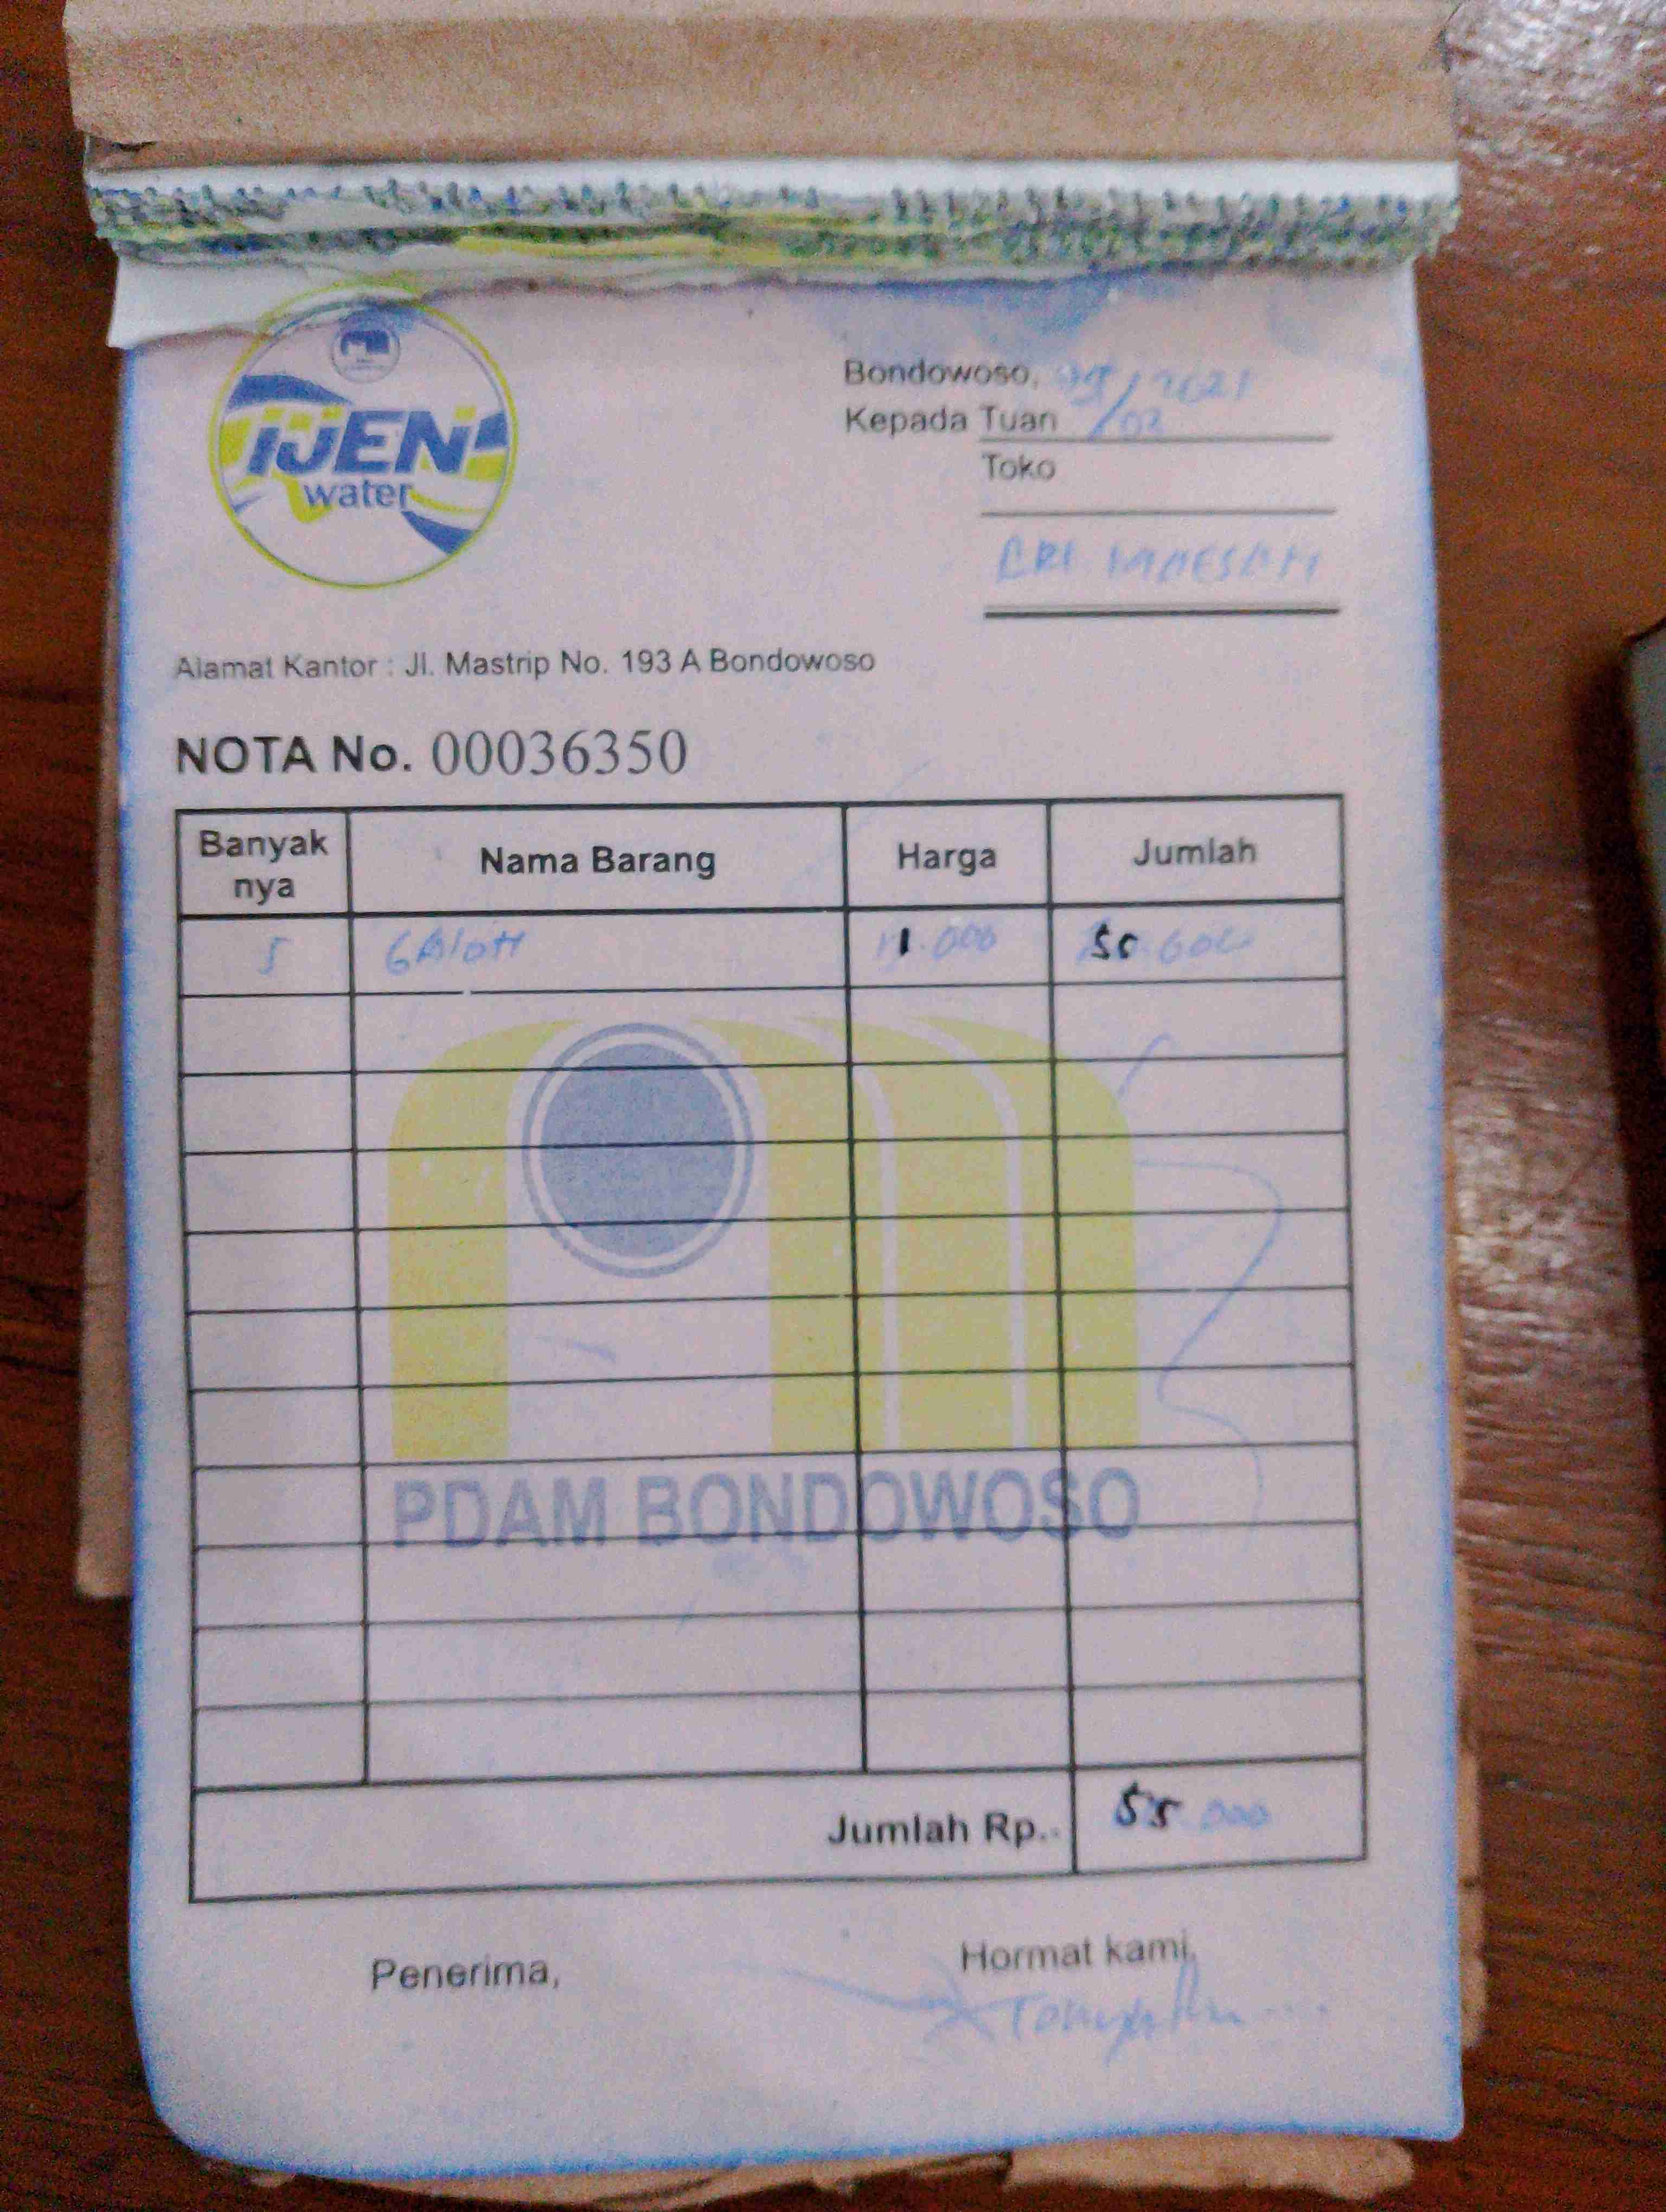 IJEN
water
Bondowoso, /02 2021
Kepada Tuan
Toko
BRI
Alamat Kantor : Jl. Mastrip No. 193 A Bondowoso
NOTA No. 00036350
Banyak nya Nama Barang Harga Jumlah
5 GAlon 11.000
PDAM BONDOWOSO
Jumlah Rp. 55.000
Penerima, Hormat kami,